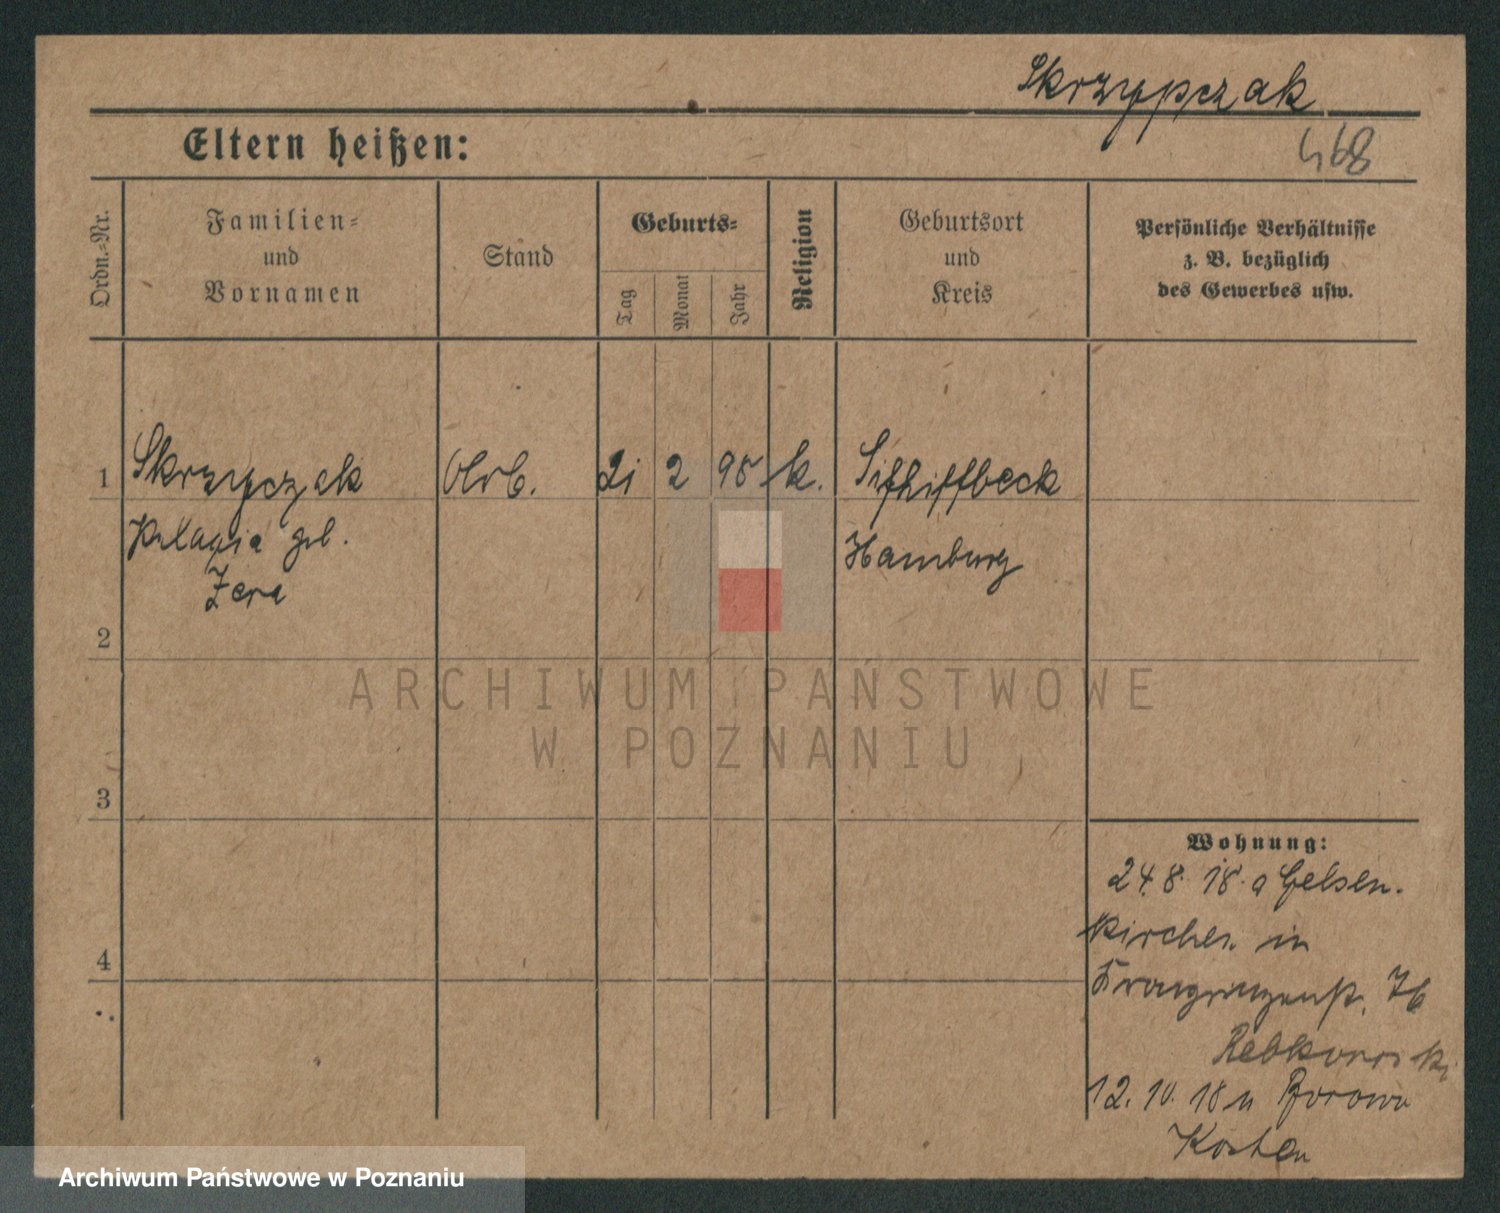 Skrzypczak
468
Eltern heißen:
Ordn.-Nr.
Familien-
und
Vornamen
Stand
Geburts-
Tag
Monat
Jahr
Religion
Geburtsort
und
Kreis
Persönliche Verhältnisse
z. B. bezüglich
des Gewerbes usw.
1 Skrzypczak 2 95 k.
Pelagia geb.
Hamburg
2
ARCHIWUM PAŃSTWOWE
W POZNANIU
3
Wohnung:
24.8.18. a Gelsen.
kirchen in
4
Kronprinzenst. 76
12. 10. 18 n Borowo
Kosten
Archiwum Państwowe w Poznaniu